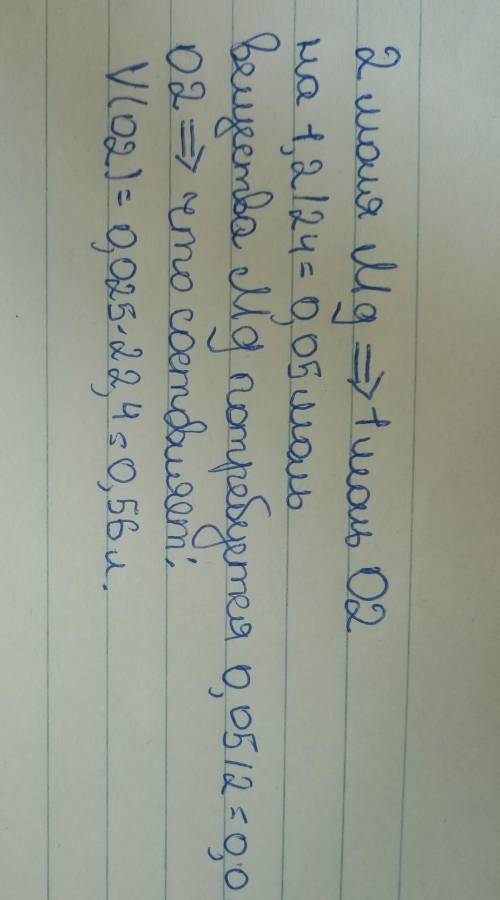 2 моля Mg => 1 моль O2
на 1,2/24 = 0,05 моль
вещества Mg потребуется 0,05/2 = 0,0
O2 => что составляет:
V(O2) = 0,025·22,4 = 0,56 л.